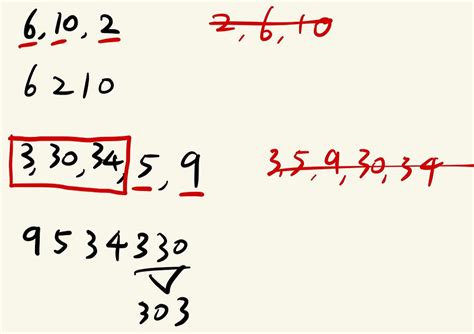 6,10,2
2,6,10
6210
3,30,34,5,9
3,5,9,30,34
9534330
303